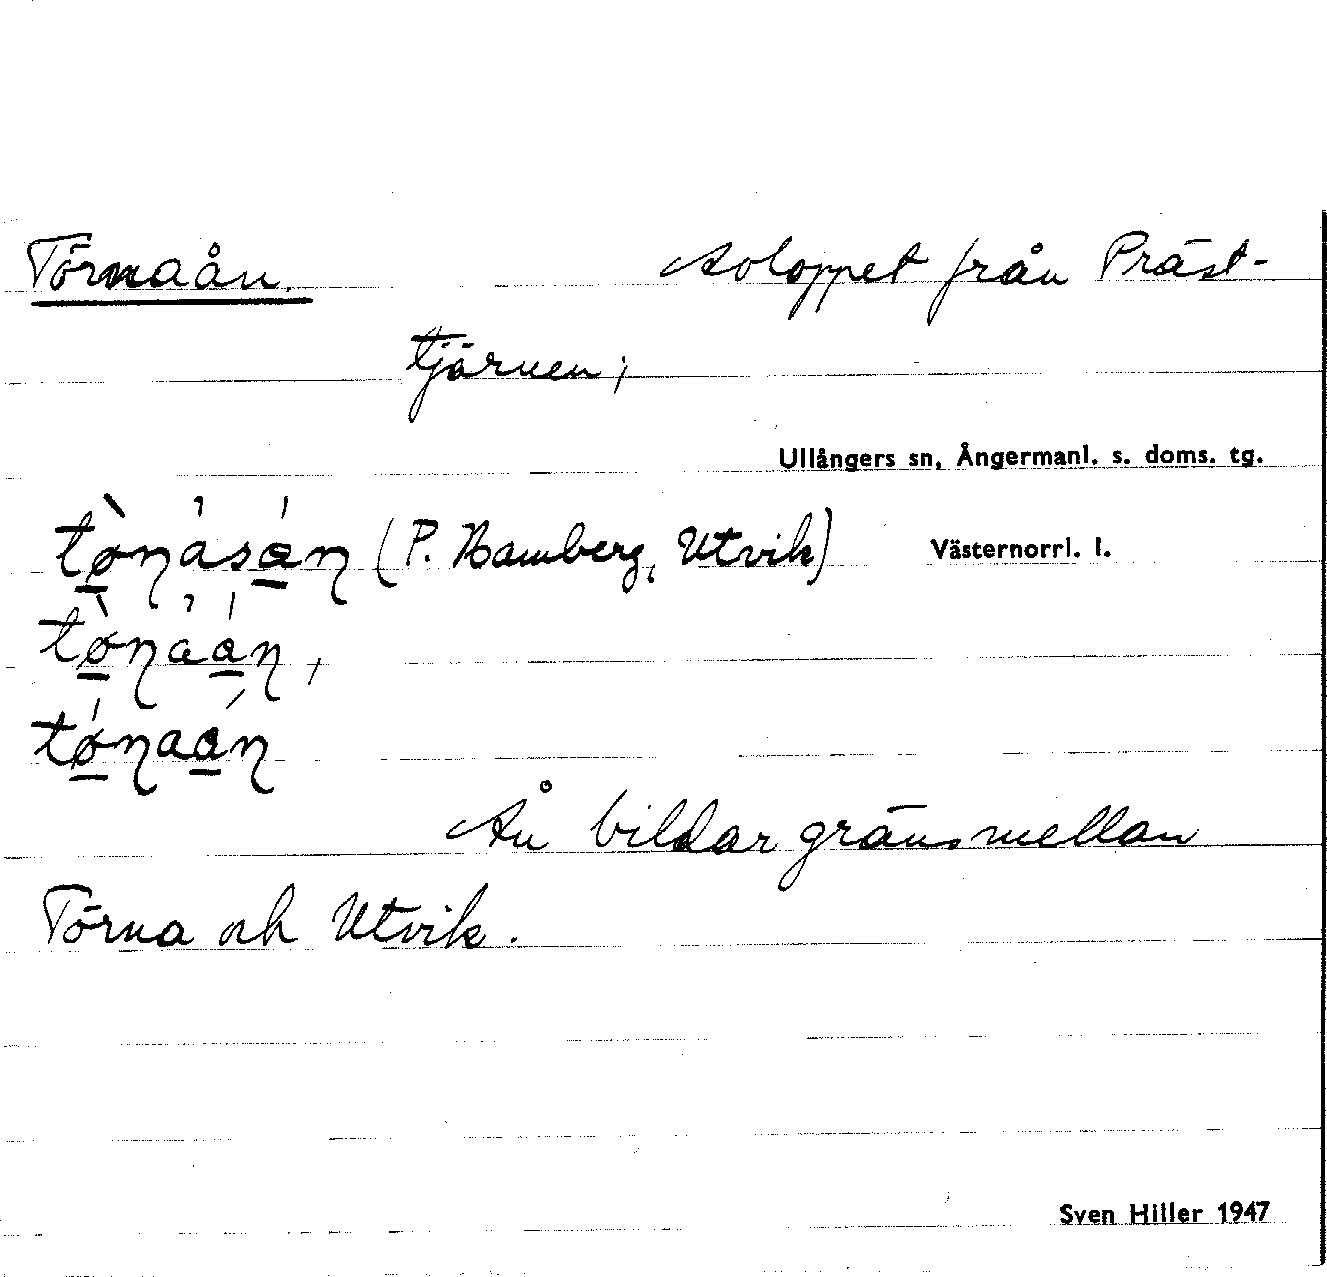 Törnaån. Avloppet från Präst-
tjärnen;
Ullångers sn, Ångermanl. s. doms. tg.
tø̱̀ɳásá̱ɳ (P. Hamberg, Utvik) Västernorrl. l.
tø̱̀ɳáá̱ɳ,
tǿ̱ɳaá̱ɳ
Ån bildar gräns mellan
Törna och Utvik.
Sven Hiller 1947